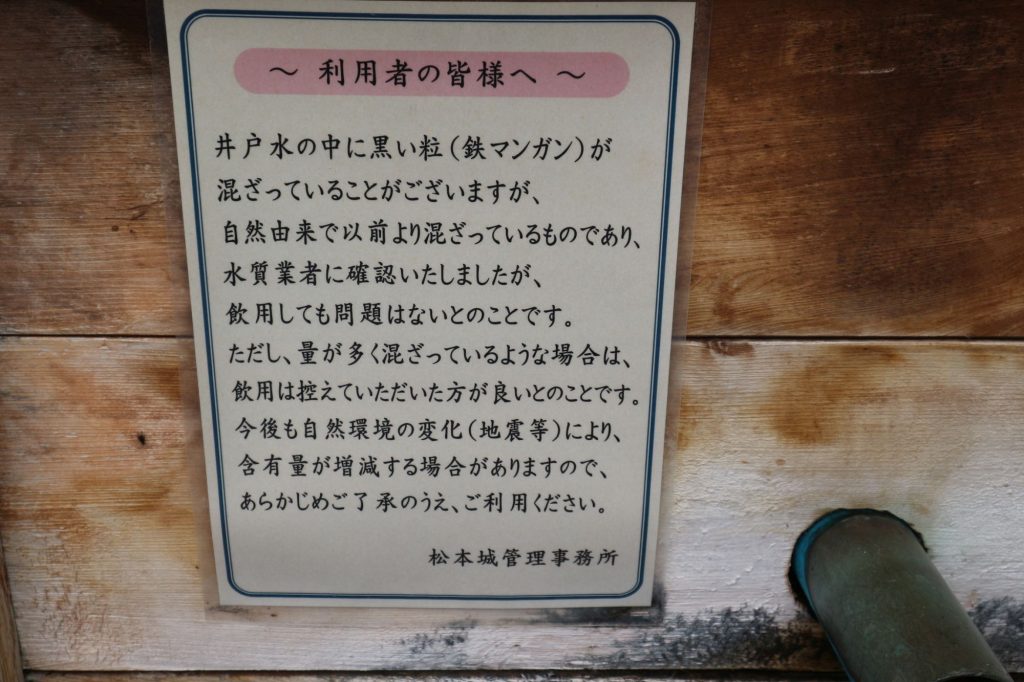 ～ 利用者の皆様へ ～
井戸水の中に黒い粒(鉄マンガン)が
混ざっていることがございますが、
自然由来で以前より混ざっているものであり、
水質業者に確認いたしましたが、
飲用しても問題はないとのことです。
ただし、量が多く混ざっているような場合は、
飲用は控えていただいた方が良いとのことです。
今後も自然環境の変化(地震等)により、
含有量が増減する場合がありますので、
あらかじめご了承のうえ、ご利用ください。
松本城管理事務所